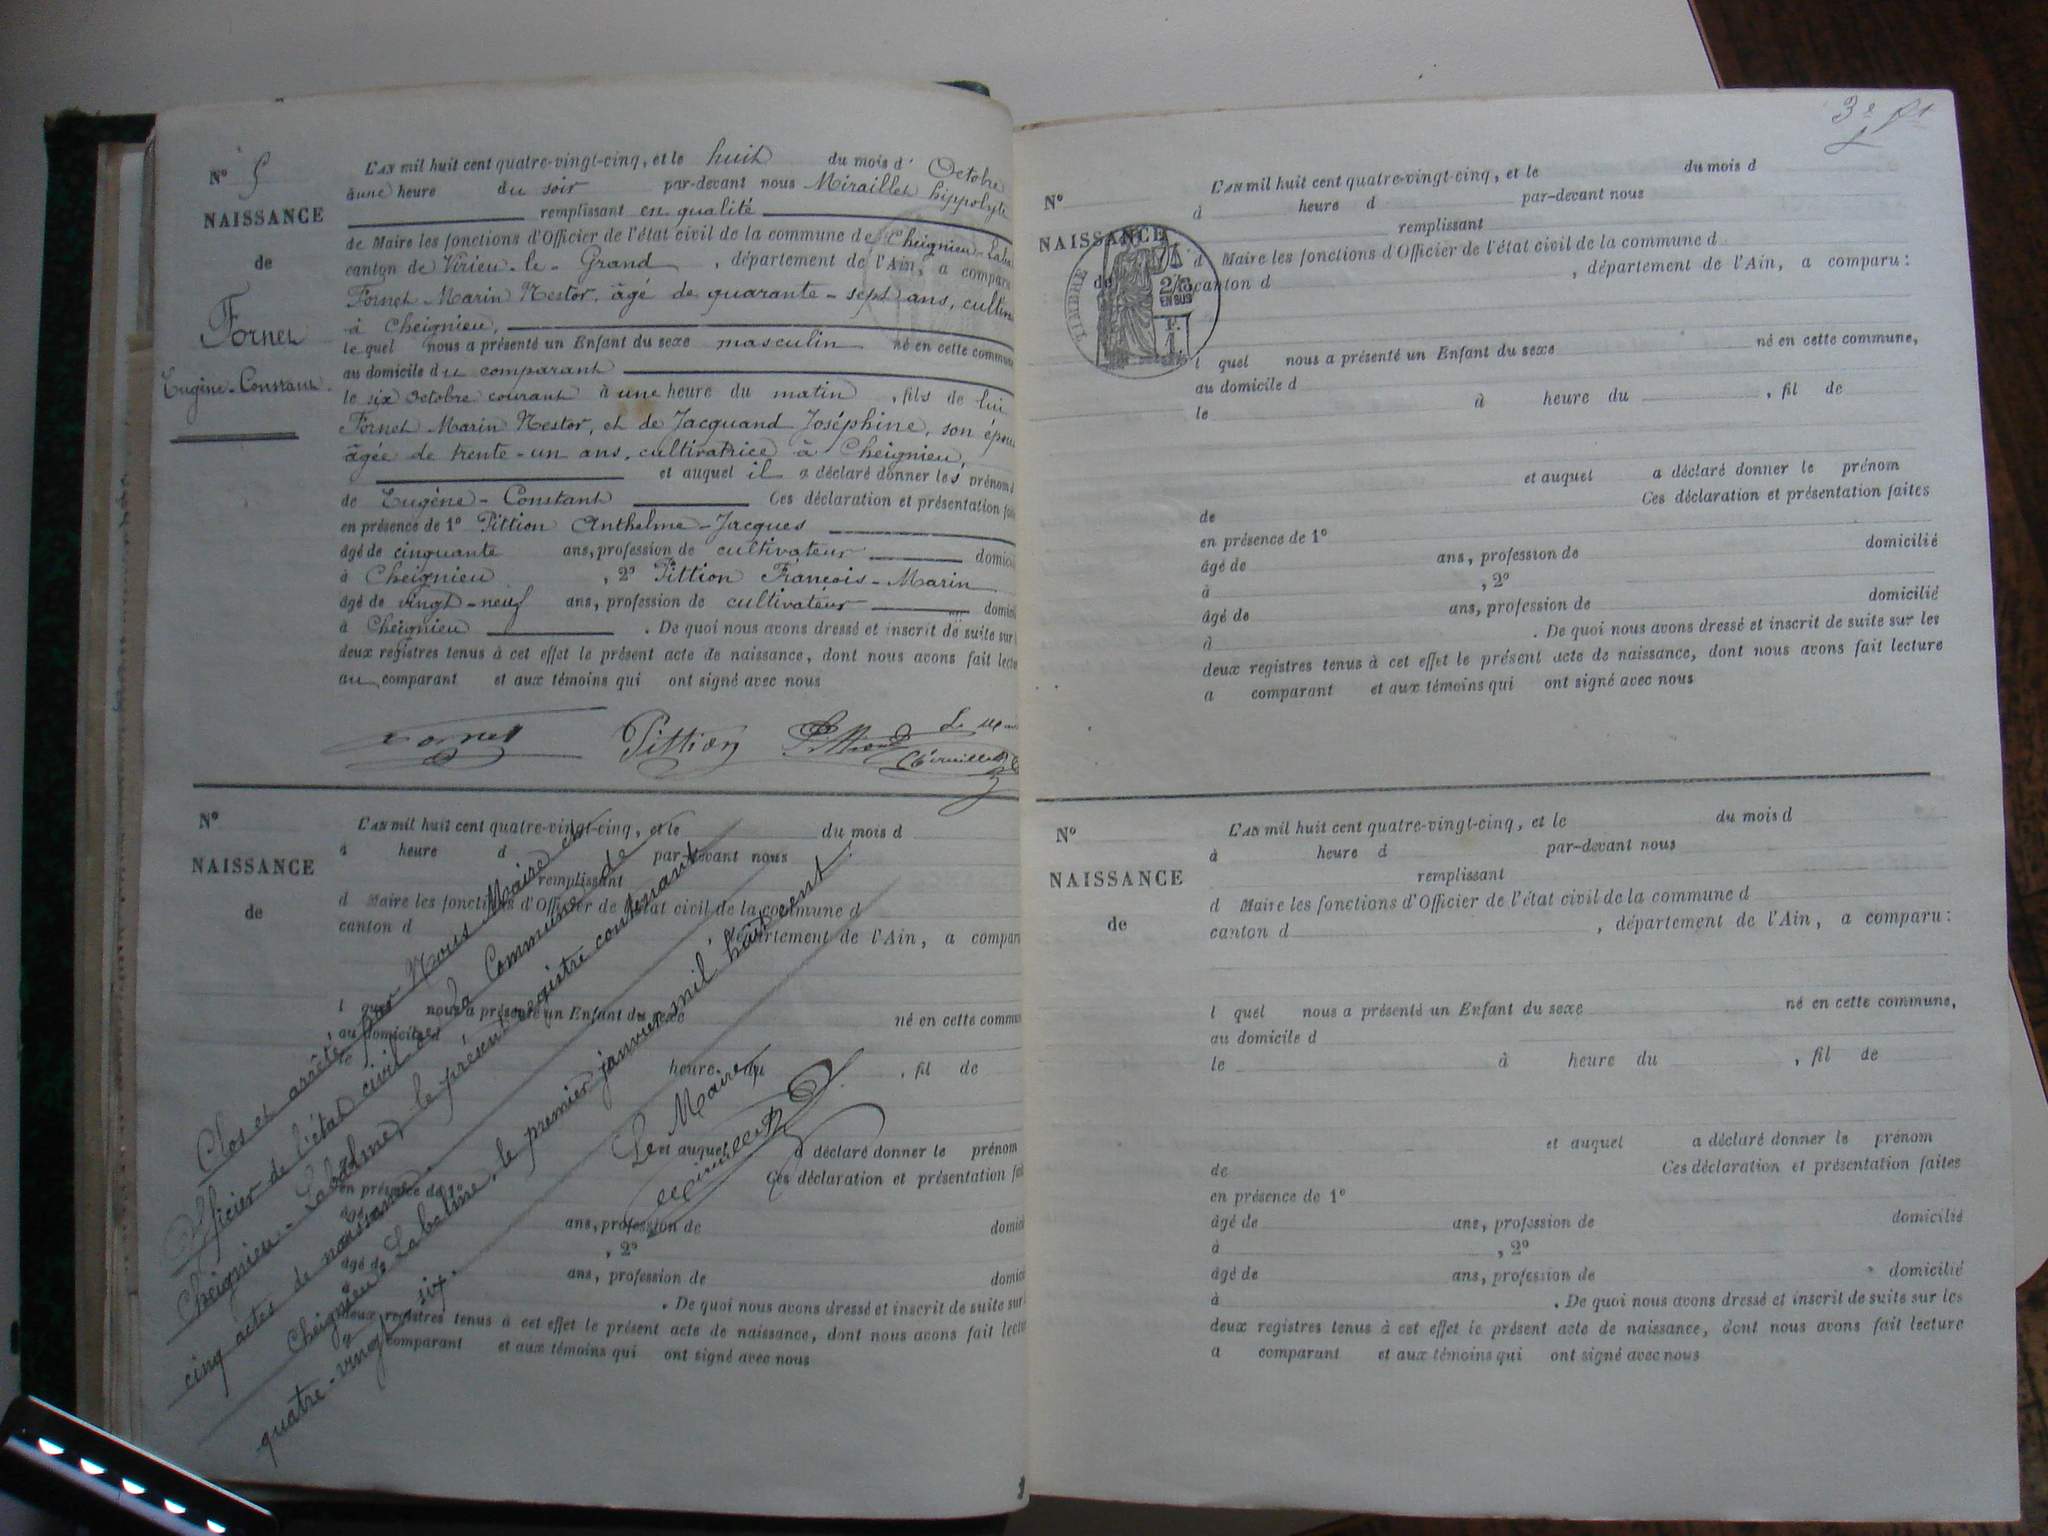 N° 5
NAISSANCE
de
Fornet
Eugène-Constant.
L'AN mil huit cent quatre-vingt-cinq, et le huit du mois d' Octobre
à une heure du soir par-devant nous Miraillet hippolyte
remplissant en qualité
de Maire les fonctions d'Officier de l'état civil de la commune de Cheignieu-Laba
canton de Virieu-le-Grand, département de l'Ain, a comparu
Fornet Marin Nestor, âgé de quarante-sept ans, cultiv
à Cheignieu,
le quel nous a présenté un Enfant du sexe masculin né en cette commune
au domicile du comparant
le six Octobre courant à une heure du matin, fils de lui
Fornet Marin Nestor, et de Jacquand Joséphine, son épous
âgée de trente-un ans, cultivatrice à Cheignieu,
et auquel il a déclaré donner les prénoms
de Eugène-Constant Ces déclaration et présentation fai
en présence de 1° Pittion Anthelme-Jacques
âgé de cinquante ans, profession de cultivateur domicil
à Cheignieu, 2° Pittion François-Marin
âgé de vingt-neuf ans, profession de cultivateur domici
à Cheignieu. De quoi nous avons dressé et inscrit de suite sur
deux registres tenus à cet effet le présent acte de naissance, dont nous avons fait lectu
au comparant et aux témoins qui ont signé avec nous
Fornet Pittion Pittion Le Mai
Miraillet
N°
NAISSANCE
de
L'AN mil huit cent quatre-vingt-cinq, et le du mois d
à heure d par-devant nous
remplissant
d Maire les fonctions d'Officier de l'état civil de la commune d
canton d département de l'Ain, a compar
l quel nous a présenté un Enfant du sexe né en cette commu
au domicile d
le heure du , fil de
et auquel a déclaré donner le prénom
Ces déclaration et présentation fai
en présence de 1°
ans, profession de domici
, 2°
âgé de ans, profession de domici
. De quoi nous avons dressé et inscrit de suite sur
deux registres tenus à cet effet le présent acte de naissance, dont nous avons fait lectu
comparant et aux témoins qui ont signé avec nous
Clos et arrêté par Nous Maire et
Officier de l'état civil de la Commune de
Cheignieu-Labalme, le présent registre contenant
cinq actes de naissance.
Cheignieu-Labalme, le premier janvier mil huit cent
quatre-vingt-six.
Le Maire,
Miraillet
3e
N°
NAISSANCE
de
TIMBRE
2/10
EN SUS
L'AN mil huit cent quatre-vingt-cinq, et le du mois d
à heure d par-devant nous
remplissant
d Maire les fonctions d'Officier de l'état civil de la commune d
canton d , département de l'Ain, a comparu:
l quel nous a présenté un Enfant du sexe né en cette commune,
au domicile d
le à heure du , fil de
et auquel a déclaré donner le prénom
de Ces déclaration et présentation faites
en présence de 1°
âgé de ans, profession de domicilié
à , 2°
âgé de ans, profession de domicilié
à . De quoi nous avons dressé et inscrit de suite sur les
deux registres tenus à cet effet le présent acte de naissance, dont nous avons fait lecture
a comparant et aux témoins qui ont signé avec nous
N°
NAISSANCE
de
L'AN mil huit cent quatre-vingt-cinq, et le du mois d
à heure d par-devant nous
remplissant
d Maire les fonctions d'Officier de l'état civil de la commune d
canton d , département de l'Ain, a comparu:
l quel nous a présenté un Enfant du sexe né en cette commune,
au domicile d
le à heure du , fil de
et auquel a déclaré donner le prénom
de Ces déclaration et présentation faites
en présence de 1°
âgé de ans, profession de domicilié
à , 2°
âgé de ans, profession de domicilié
à . De quoi nous avons dressé et inscrit de suite sur les
deux registres tenus à cet effet le présent acte de naissance, dont nous avons fait lecture
a comparant et aux témoins qui ont signé avec nous